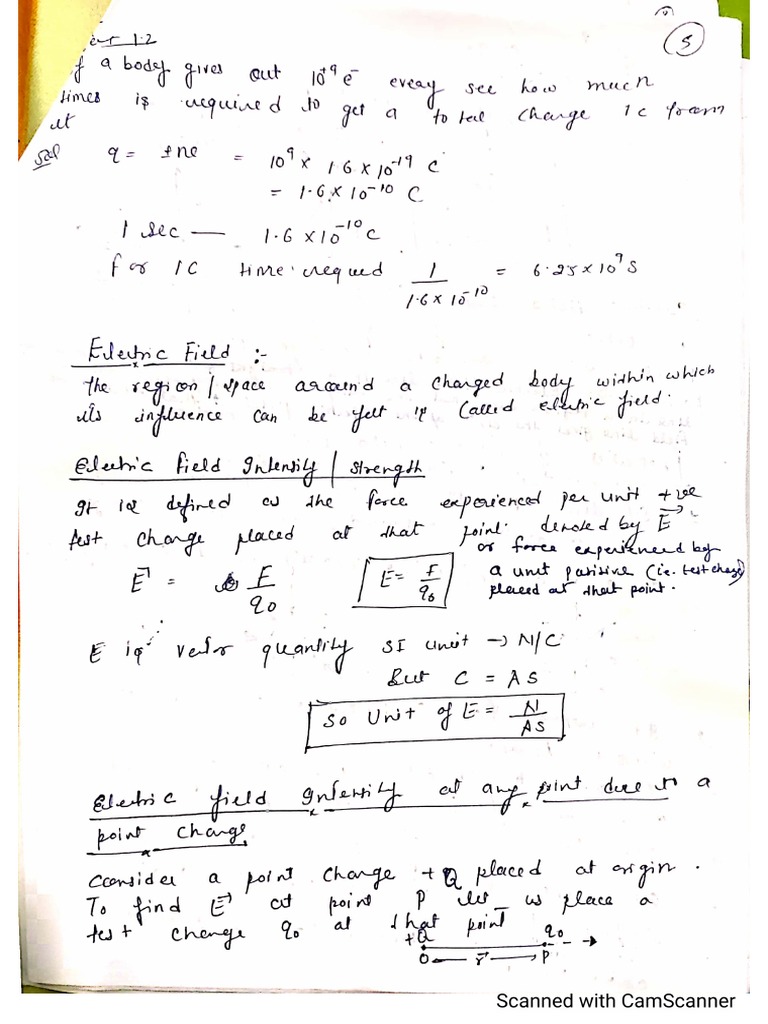 5
1.2
f a body gives out 10⁺⁹ e⁻ every sec how much
times is required to get a total charge 1c from
it
Sol q = ±ne = 10⁹ × 1.6 × 10⁻¹⁹ C
= 1.6 × 10⁻¹⁰ C
1 sec — 1.6 × 10⁻¹⁰ C
for 1C time required 1 / 1.6 × 10⁻¹⁰ = 6.25 × 10⁹ S
Electric Field :-
The region / space around a charged body within which
its influence can be felt is called electric field.
Electric field Intensity / Strength
It is defined as the force experienced per unit +ve
test charge placed at that point. denoted by E⃗
or force experienced by
a unit positive (i.e. test charge)
placed at that point.
E⃗ = F / q₀ E = F / q₀
E is vector quantity SI unit → N/C
But C = AS
So Unit of E = N / AS
Electric field Intensity at any point due to a
point charge
Consider a point charge +Q placed at origin.
To find E⃗ at point P let us place a
test charge q₀ at that point
+Q q₀
O r⃗ P
Scanned with CamScanner